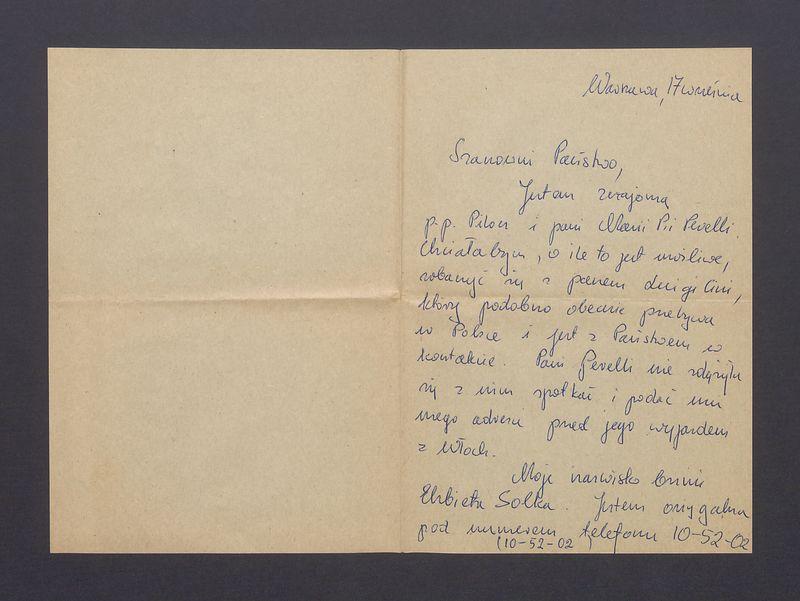 Warszawa, 17 września
Szanowni Państwo,
Jestem znajomą
p.p. Pilser i pani Marii Pii
Chciałabym, o ile to jest możliwe,
zobaczyć się z panem Luigi Cini,
który podobno obecnie przebywa
w Polsce i jest z Państwem w
kontakcie. Pani nie zdążyła
się z nim spotkać i podać mu
mego adresu przed jego wyjazdem
z Włoch.
Moje nazwisko brzmi
Elżbieta Solka. Jestem osiągalna
pod numerem telefonu 10-52-02
(10-52-02)